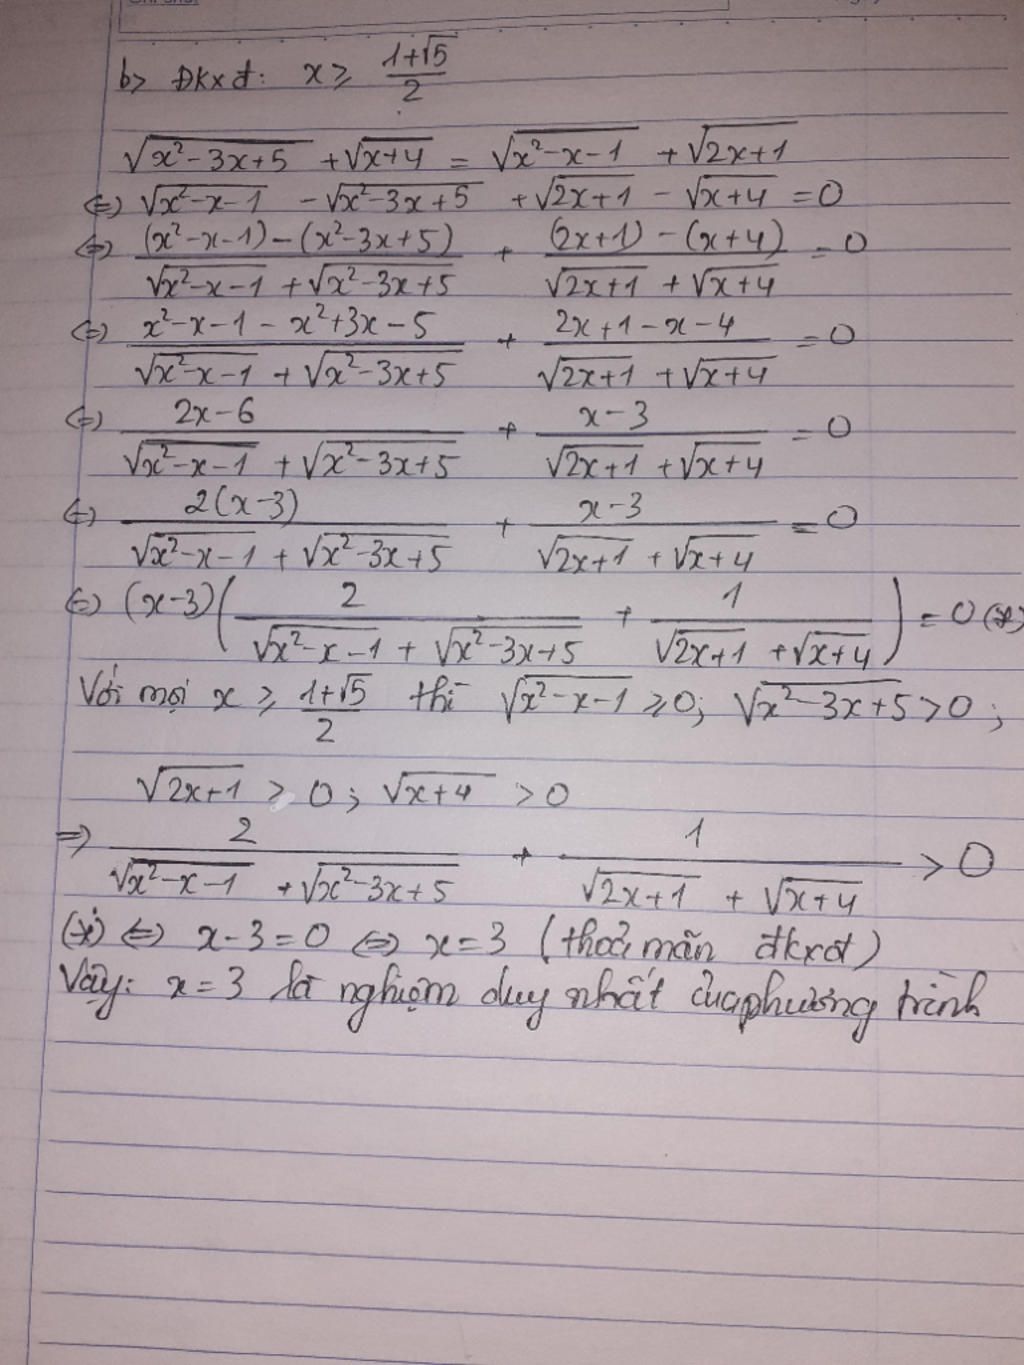 b> Đkxđ: x ≥ (1+√5)/2
√(x²-3x+5) + √(x+4) = √(x²-x-1) + √(2x+1)
⇔ √(x²-x-1) - √(x²-3x+5) + √(2x+1) - √(x+4) = 0
⇔ ((x²-x-1)-(x²-3x+5))/(√(x²-x-1) + √(x²-3x+5)) + ((2x+1)-(x+4))/(√(2x+1) + √(x+4)) = 0
⇔ (x²-x-1-x²+3x-5)/(√(x²-x-1) + √(x²-3x+5)) + (2x+1-x-4)/(√(2x+1) + √(x+4)) = 0
⇔ (2x-6)/(√(x²-x-1) + √(x²-3x+5)) + (x-3)/(√(2x+1) + √(x+4)) = 0
⇔ (2(x-3))/(√(x²-x-1) + √(x²-3x+5)) + (x-3)/(√(2x+1) + √(x+4)) = 0
⇔ (x-3)(2/(√(x²-x-1) + √(x²-3x+5)) + 1/(√(2x+1) + √(x+4))) = 0 (*)
Với mọi x ≥ (1+√5)/2 thì √(x²-x-1) ≥ 0; √(x²-3x+5) > 0;
√(2x+1) > 0; √(x+4) > 0
⇒ 2/(√(x²-x-1) + √(x²-3x+5)) + 1/(√(2x+1) + √(x+4)) > 0
(*) ⇔ x-3=0 ⇔ x=3 (thoả mãn đkxđ)
Vậy: x=3 là nghiệm duy nhất của phương trình